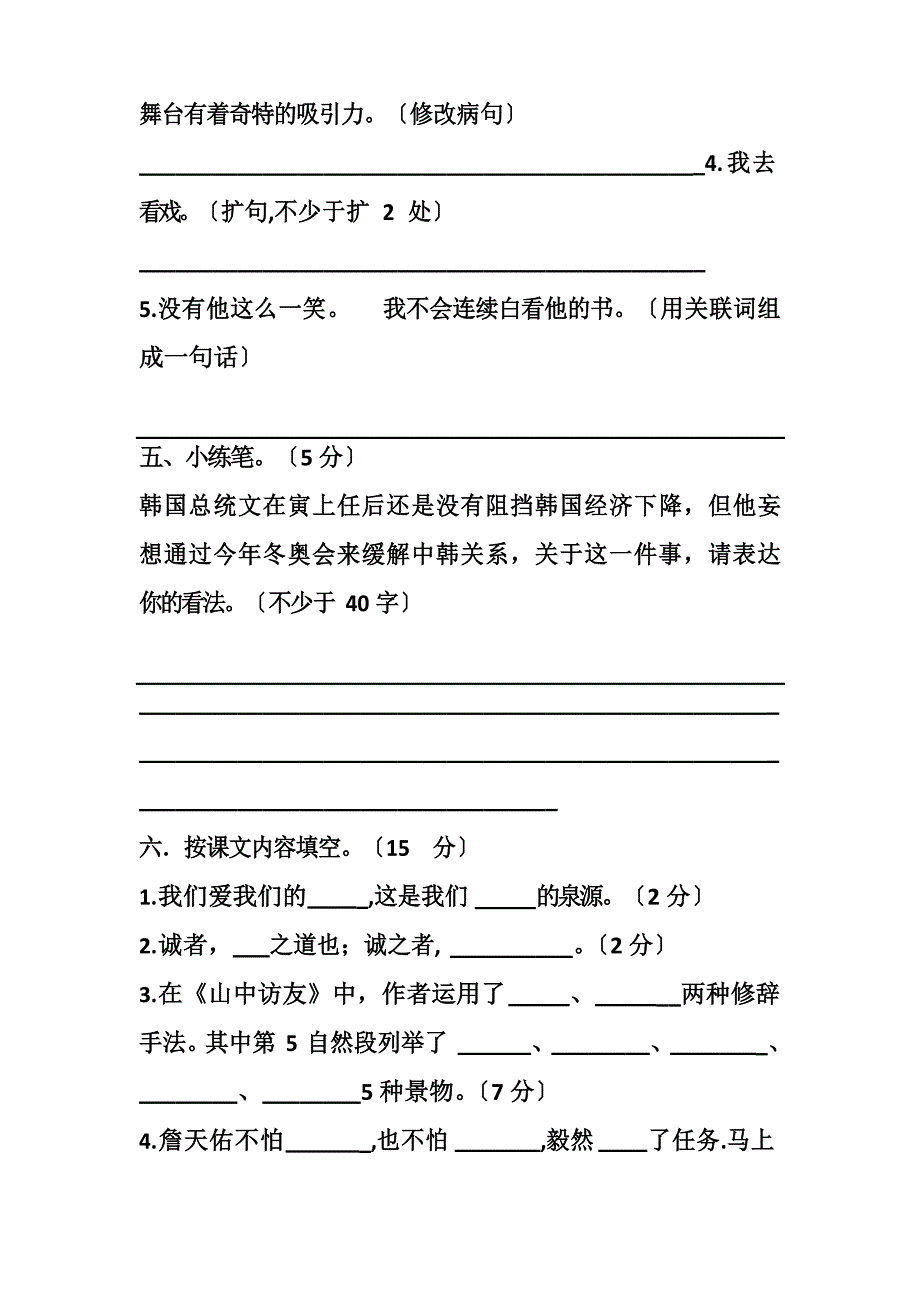 舞台有着奇特的吸引力。〔修改病句〕
______________________________________________4.我去
看戏。〔扩句,不少于扩 2 处〕
______________________________________________
5.没有他这么一笑。 我不会连续白看他的书。〔用关联词组
成一句话〕
五、小练笔。〔5 分〕
韩国总统文在寅上任后还是没有阻挡韩国经济下降，但他妄
想通过今年冬奥会来缓解中韩关系，关于这一件事，请表达
你的看法。〔不少于 40 字〕
____________________________________________________
____________________________________________________
__________________________________
六．按课文内容填空。〔15 分〕
1.我们爱我们的_____,这是我们 _____的泉源。〔2 分〕
2.诚者，___之道也；诚之者, __________。〔2 分〕
3.在《山中访友》中，作者运用了_____、_______两种修辞
手法。其中第 5 自然段列举了 ______、________、________、
________、________5 种景物。〔7 分〕
4.詹天佑不怕_______,也不怕 _______,毅然 ____了任务.马上